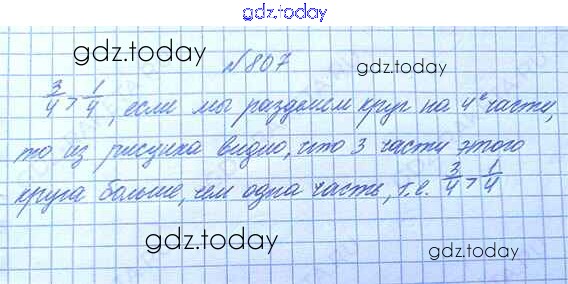 gdz.today
gdz.today
№807
gdz.today
3/4 > 1/4, если мы разделим круг на 4е части,
то из рисунка видно, что 3 части этого
круга больше, чем одна часть, т.е. 3/4 > 1/4
gdz.today
gdz.today